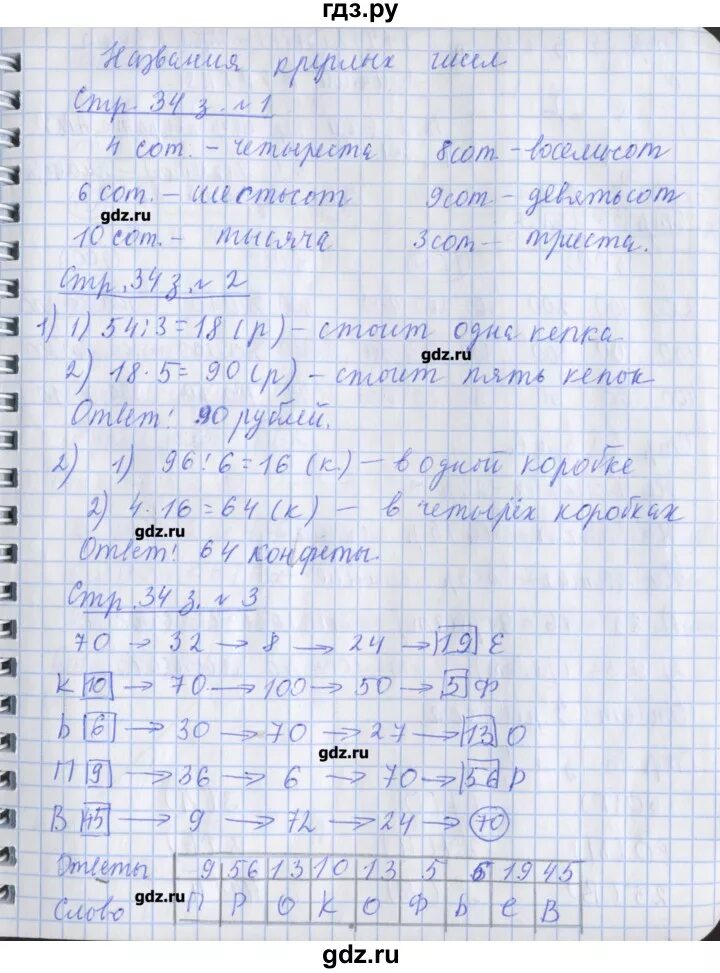 гдз.ру
Названия круглых чисел
Стр. 34 з. № 1
4 сот. – четыреста 8 сот – восемьсот
6 сот. – шестьсот 9 сот – девятьсот
gdz.ru
10 сот. – тысяча 3 сот – триста.
Стр. 34 з. № 2
1) 1) 54:3=18 (р) – стоит одна кепка
gdz.ru
2) 18·5= 90 (р) – стоит пять кепок
Ответ: 90 рублей.
2) 1) 96:6=16 (к.) – в одной коробке
2) 4·16=64 (к) – в четырёх коробках
gdz.ru
Ответ: 64 конфеты.
Стр. 34 з. № 3
70 → 32 → 8 → 24 → 19 Е
К 10 → 70 → 100 → 50 → 5 Ф
Ь 6 → 30 → 70 → 27 → 13 О
gdz.ru
П 9 → 36 → 6 → 70 → 56 Р
В 45 → 9 → 72 → 24 → 70
Ответы 9 56 13 10 13 5 6 19 45
gdz.ru
Слово П Р О К О Ф Ь Е В
gdz.ru